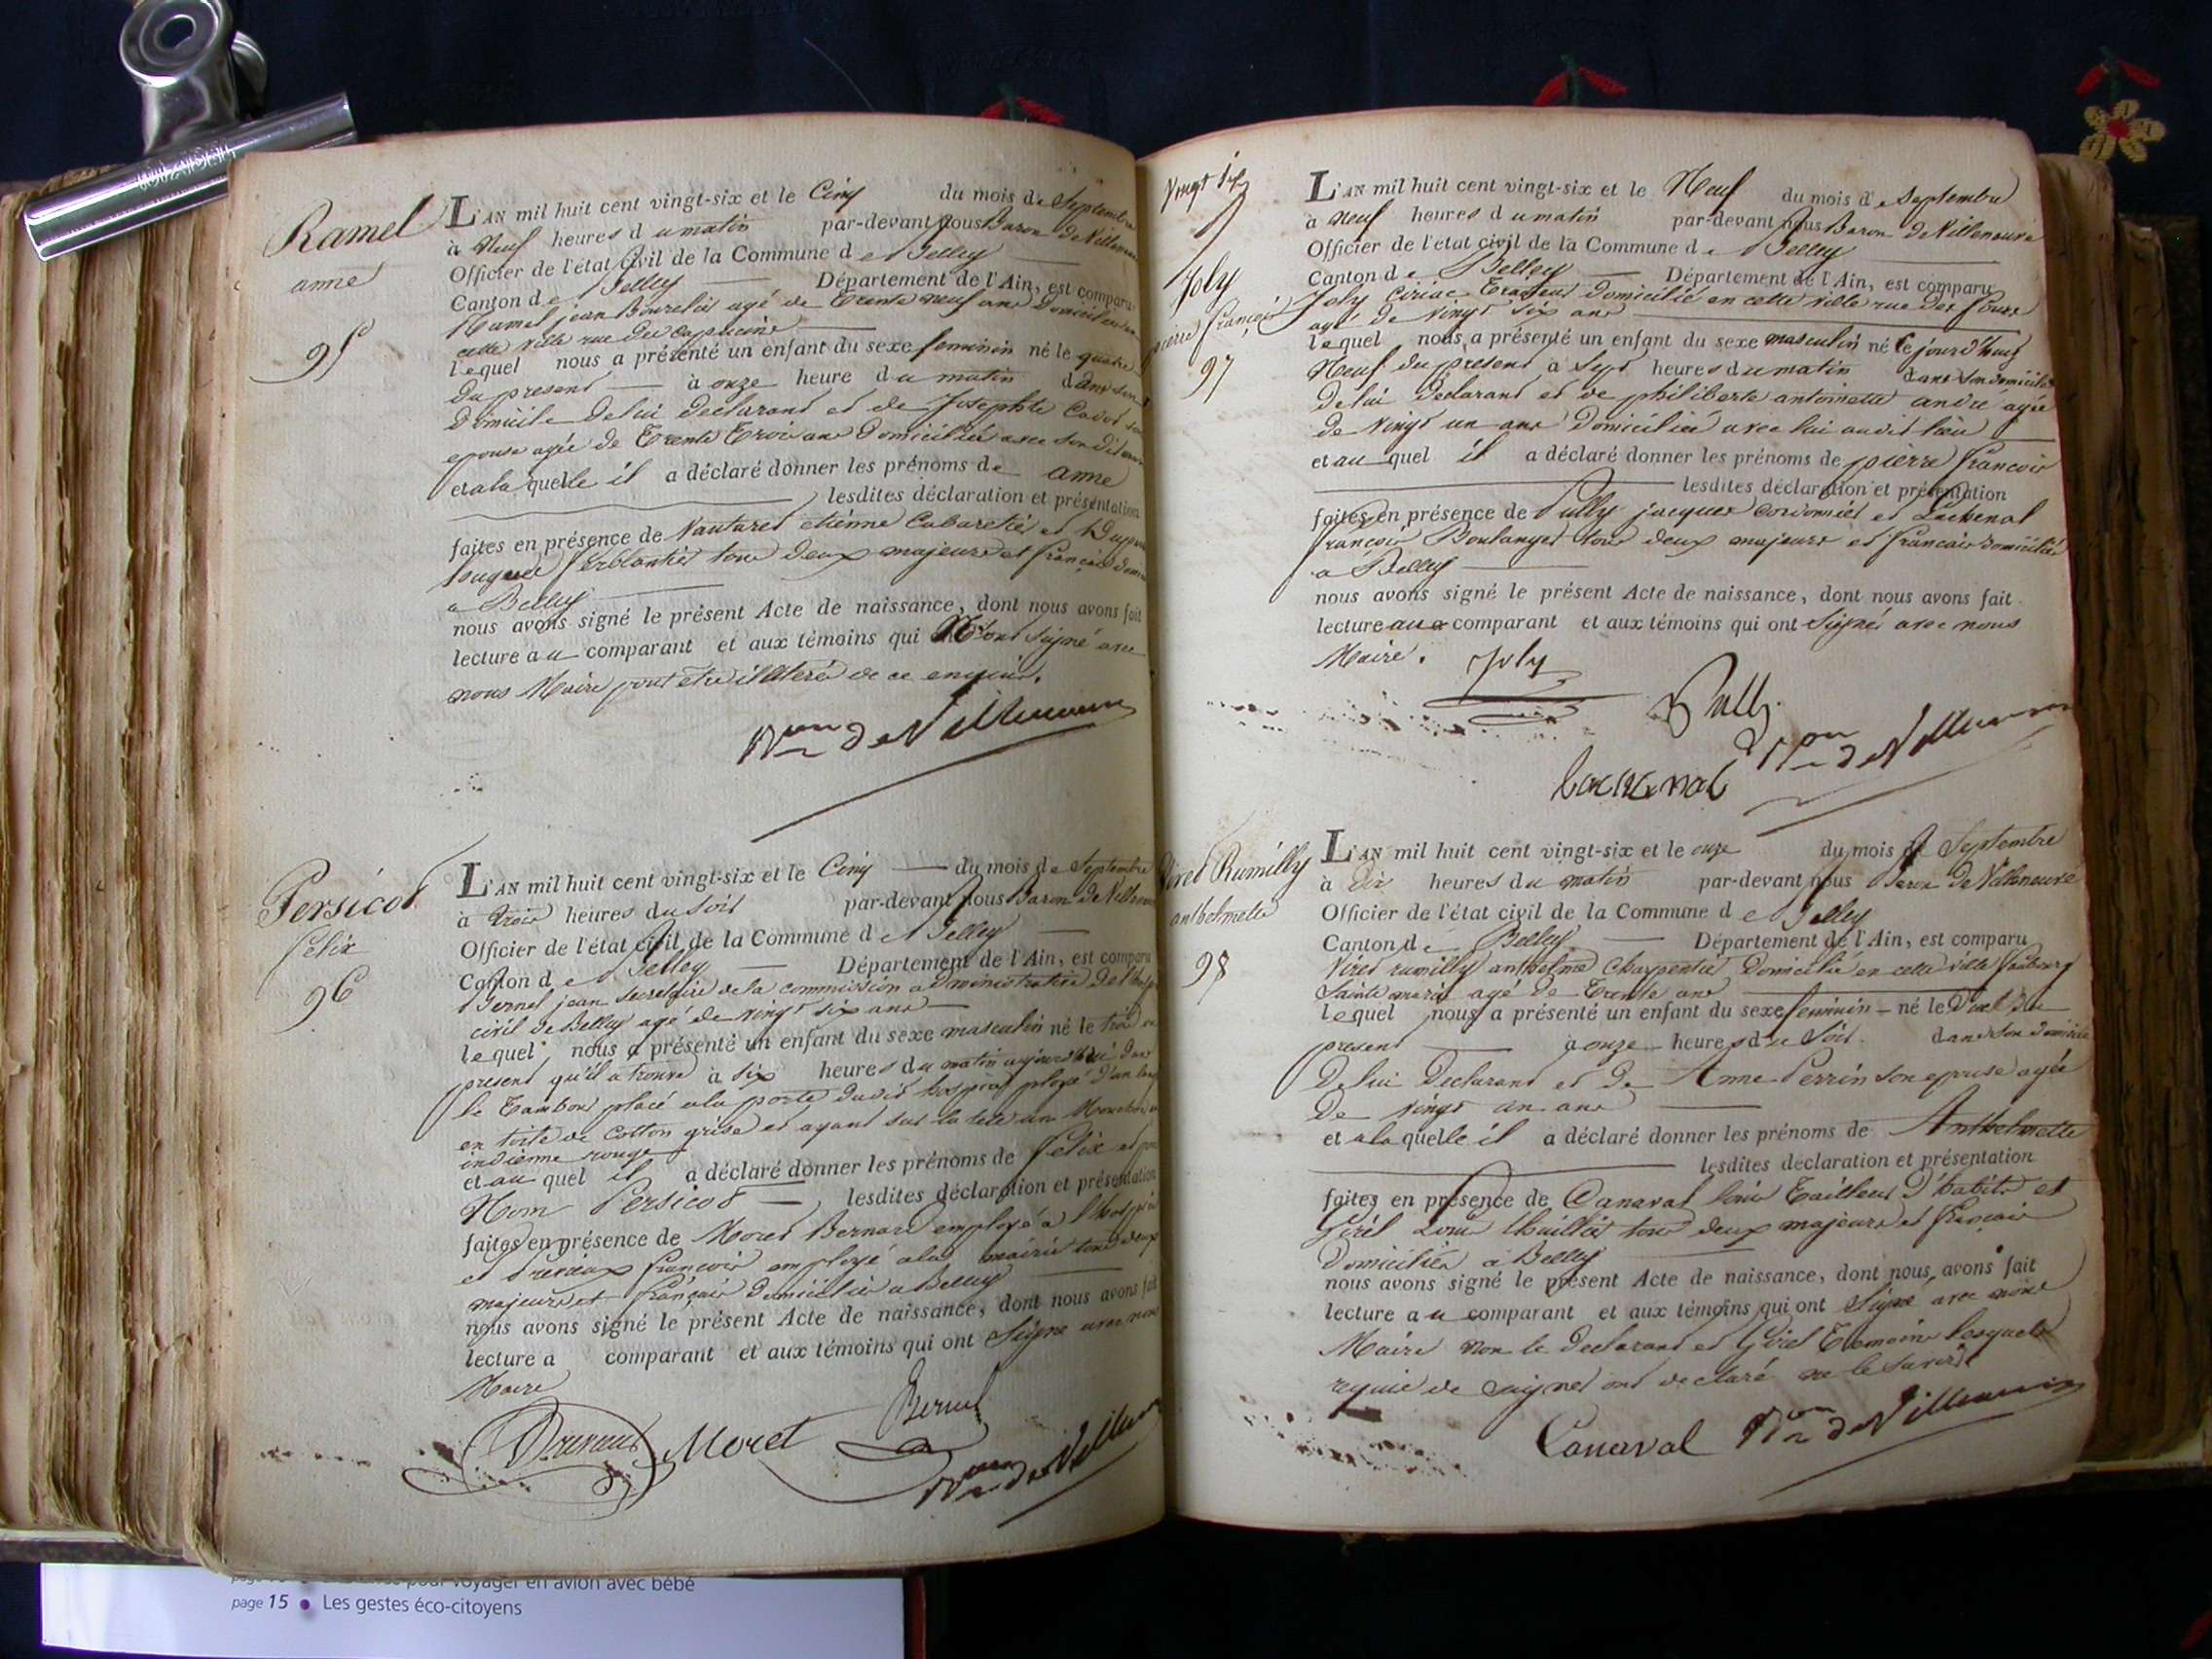 Ramel
anne
95
L'AN mil huit cent vingt-six et le Cinq du mois de Septembre
à Neuf heures du matin par-devant nous Baron de Villeneuve
Officier de l'état civil de la Commune de Belley
Canton de Belley Département de l'Ain, est comparu
Ramel jean Bourelier agé de Trente neuf ans Domicilié en
cette ville rue des capucins
lequel nous a présenté un enfant du sexe feminin né le quatre
du present à onze heure du matin dans son
Domicile de lui declarant et de Josephte Cadot son
epouse agée de Trente Trois ans Domiciliée avec son dit
et a la quelle il a déclaré donner les prénoms de anne
lesdites déclaration et présentation
faites en présence de Vautaret etienne Cabaretier et
hugues ferblantier tous deux majeurs et français
a Belley
nous avons signé le présent Acte de naissance, dont nous avons fait
lecture au comparant et aux témoins qui N'ont signé avec
nous Maire pour etre illiteré de ce enquis.
Bon de Villeneuve
Persicot
Felix
96
L'AN mil huit cent vingt-six et le Cinq du mois de Septembre
à trois heures du soir par-devant nous Baron de Villeneuve
Officier de l'état civil de la Commune de Belley
Canton de Belley Département de l'Ain, est comparu
Bernel jean secretaire de la commission administrative de l'hospice
civil de Belley agé de vingt six ans
lequel nous a présenté un enfant du sexe masculin né le trois du
present qu'il a trouvé à six heures du matin aujourd'hui dans
le Tambour placé a la porte du dit hospice ployé d'un
en toile de cotton grise et ayant sur la tete un Mouchoir
indienne rouge
et au quel il a déclaré donner les prénoms de Felix et pour
Nom Persicot lesdites déclaration et présentation
faites en présence de Moret Bernard employé a l'hospice
et Dreveux françois employé a la mairie tous deux
majeurs et français domiciliés a Belley
nous avons signé le présent Acte de naissance, dont nous avons fait
lecture a comparant et aux témoins qui ont Signé avec nous
Maire
Bernel
Dreveux Moret
Bon de Villeneuve
Vingt Sept
Joly
pierre françois
97
L'AN mil huit cent vingt-six et le Neuf du mois de Septembre
à Neuf heures du matin par-devant nous Baron de Villeneuve
Officier de l'état civil de la Commune de Belley
Canton de Belley Département de l'Ain, est comparu
Joly Ciriac Domicilié en cette ville rue des fours
agé de Vingt Six ans
lequel nous a présenté un enfant du sexe masculin né ce jourd'huy
Neuf du present à Sept heures du matin dans son domicile
de lui Declarant et de philiberte antoinette andré agée
de Vingt un ans Domiciliée avec lui audit lieu
et au quel il a déclaré donner les prénoms de pierre françois
lesdites déclaration et présentation
faites en présence de Pully jacques Cordonnier et Lachenal
françois Boulanger tous deux majeurs et francais domiciliés
a Belley
nous avons signé le présent Acte de naissance, dont nous avons fait
lecture au comparant et aux témoins qui ont Signés avec nous
Maire. Joly
Pully
Bon de Villeneuve
lachenal
Viret Rumilly
anthelmette
98
L'AN mil huit cent vingt-six et le onze du mois de Septembre
à Dix heures du matin par-devant nous Baron de Villeneuve
Officier de l'état civil de la Commune de Belley
Canton de Belley Département de l'Ain, est comparu
Viret rumilly anthelme Charpentier Domicilié en cette ville faubourg
Sainte marie agé de Trente ans
lequel nous a présenté un enfant du sexe feminin né le Dix du
present à onze heures du soir dans son domicile
De lui Declarant et de Anne Perrin son epouse agée
De Vingt un ans
et a la quelle il a déclaré donner les prénoms de Anthelmette
lesdites declaration et présentation
faites en présence de Canaval louis Tailleur d'habits et
Girel Louis huillier tous deux majeurs et français
Domiciliés a Belley
nous avons signé le présent Acte de naissance, dont nous avons fait
lecture au comparant et aux témoins qui ont Signé avec nous
Maire non le Declarant et Girel Temoins lesquels
requis de signer ont declaré ne le savoir
Canaval Bon de Villeneuve
pour voyager en avion avec bébé
page 15 • Les gestes éco-citoyens